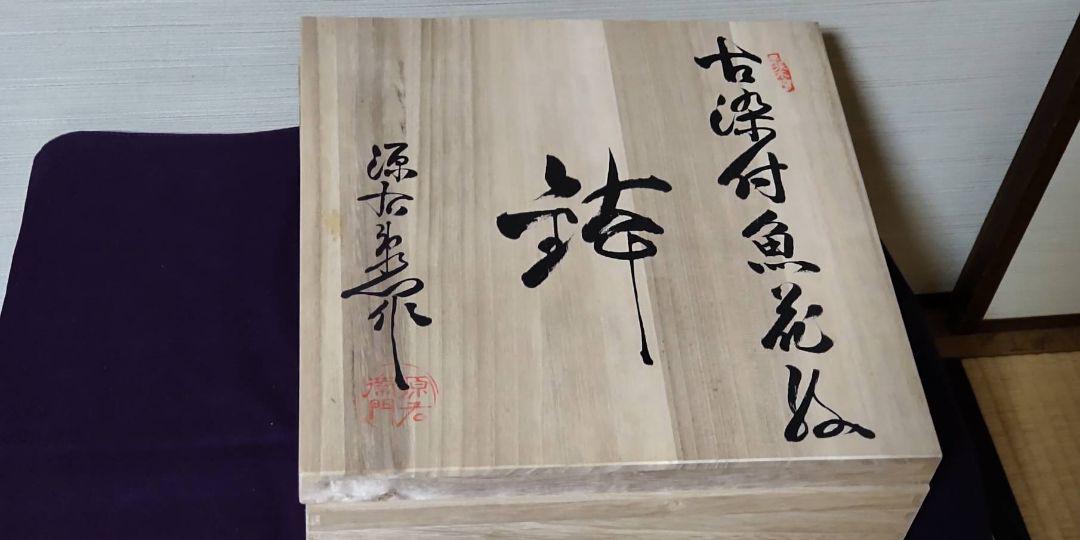 古染付魚花紋
鉢
源右衛門作
源右
衛門